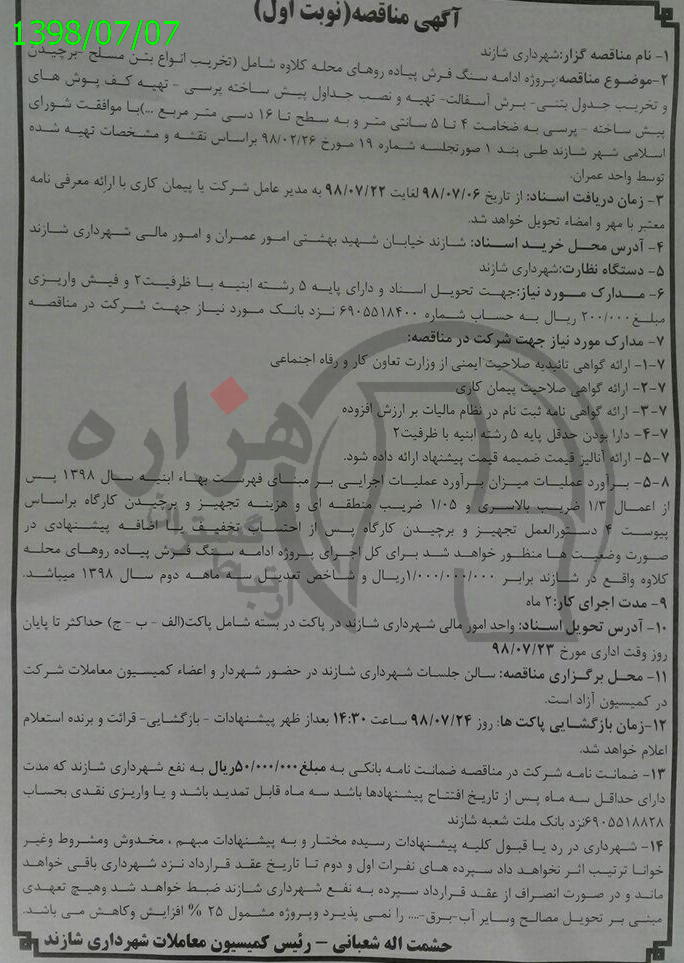 آگهی مناقصه(نوبت اول)
1398/07/07
۱- نام مناقصه گزار:شهرداری شازند
۲-موضوع مناقصه:پروژه ادامه سنگ فرش پیاده روهای محله کلاوه شامل (تخریب انواع بتن مسلح -برچیدن
و تخریب جدول بتنی- برش آسفالت- تهیه و نصب جداول پیش ساخته پرسی - تهیه کف پوش های
پیش ساخته - پرسی به ضخامت ۴ تا ۵ سانتی متر و به سطح تا ۱۶ دسی متر مربع ...)با موافقت شورای
اسلامی شهر شازند طی بند ۱ صورتجلسه شماره ۱۹ مورخ ۹۸/۰۲/۲۶ براساس نقشه و مشخصات تهیه شده
توسط واحد عمران.
۳- زمان دریافت اسناد: از تاریخ ۹۸/۰۷/۰۶ لغایت ۹۸/۰۷/۲۲ به مدیر عامل شرکت یا پیمان کاری با ارائه معرفی نامه
معتبر با مهر و امضاء تحویل خواهد شد.
۴- آدرس محل خرید اسناد: شازند خیابان شهید بهشتی امور عمران و امور مالی شهرداری شازند
۵- دستگاه نظارت:شهرداری شازند
۶- مدارک مورد نیاز:جهت تحویل اسناد و دارای پایه ۵ رشته ابنیه با ظرفیت۲ و فیش واریزی
مبلغ۲۰۰/۰۰۰ ریال به حساب شماره ۶۹۰۵۵۱۸۴۰۰ نزد بانک مورد نیاز جهت شرکت در مناقصه
۷- مدارک مورد نیاز جهت شرکت در مناقصه:
۷-۱- ارائه گواهی تائیدیه صلاحیت ایمنی از وزارت تعاون کار و رفاه اجتماعی
۷-۲- ارائه گواهی صلاحیت پیمان کاری
۷-۳- ارائه گواهی نامه ثبت نام در نظام مالیات بر ارزش افزوده
۷-۴- دارا بودن حدقل پایه ۵ رشته ابنیه با ظرفیت۲
۷-۵- ارائه آنالیز قیمت ضمیمه قیمت پیشنهاد ارائه داده شود.
۸-۵- برآورد عملیات میزان برآورد عملیات اجرایی بر مبنای فهرست بهاء ابنیه سال ۱۳۹۸ پس
از اعمال ۱/۳ ضریب بالاسری و ۱/۰۵ ضریب منطقه ای و هزینه تجهیز و برچیدن کارگاه براساس
پیوست ۴ دستورالعمل تجهیز و برچیدن کارگاه پس از احتساب تخفیف یا اضافه پیشنهادی در
صورت وضعیت ها منظور خواهد شد برای کل اجرای پروژه ادامه سنگ فرش پیاده روهای محله
کلاوه واقع در شازند برابر ۱/۰۰۰/۰۰۰/۰۰۰ریال و شاخص تعدیل سه ماهه دوم سال ۱۳۹۸ میباشد.
۹- مدت اجرای کار:۲ ماه
۱۰- آدرس تحویل اسناد: واحد امور مالی شهرداری شازند در پاکت در بسته شامل پاکت(الف - ب - ج) حداکثر تا پایان
روز وقت اداری مورخ ۹۸/۰۷/۲۳
۱۱- محل برگزاری مناقصه: سالن جلسات شهرداری شازند در حضور شهردار و اعضاء کمیسیون معاملات شرکت
در کمیسیون آزاد است.
۱۲-زمان بازگشایی پاکت ها: روز ۹۸/۰۷/۲۴ ساعت ۱۴:۳۰ بعداز ظهر پیشنهادات - بازگشایی- قرائت و برنده استعلام
اعلام خواهد شد.
۱۳- ضمانت نامه شرکت در مناقصه ضمانت نامه بانکی به مبلغ۵۰/۰۰۰/۰۰۰ریال به نفع شهرداری شازند که مدت
دارای حداقل سه ماه پس از تاریخ افتتاح پیشنهادها باشد سه ماه قابل تمدید باشد و یا واریزی نقدی بحساب
۶۹۰۵۵۱۸۸۲۸نزد بانک ملت شعبه شازند
۱۴- شهرداری در رد یا قبول کلیه پیشنهادات رسیده مختار و به پیشنهادات مبهم ، مخدوش ومشروط وغیر
خوانا ترتیب اثر نخواهد داد سپرده های نفرات اول و دوم تا تاریخ عقد قرارداد نزد شهرداری باقی خواهد
ماند و در صورت انصراف از عقد قرارداد سپرده به نفع شهرداری شازند ضبط خواهد شد وهیچ تعهدی
مبنی بر تحویل مصالح وسایر آب-برق-... را نمی پذیرد وپروژه مشمول ۲۵ % افزایش وکاهش می باشد.
حشمت اله شعبانی - رئیس کمیسیون معاملات شهرداری شازند
هزاره
گستران
ارتباط